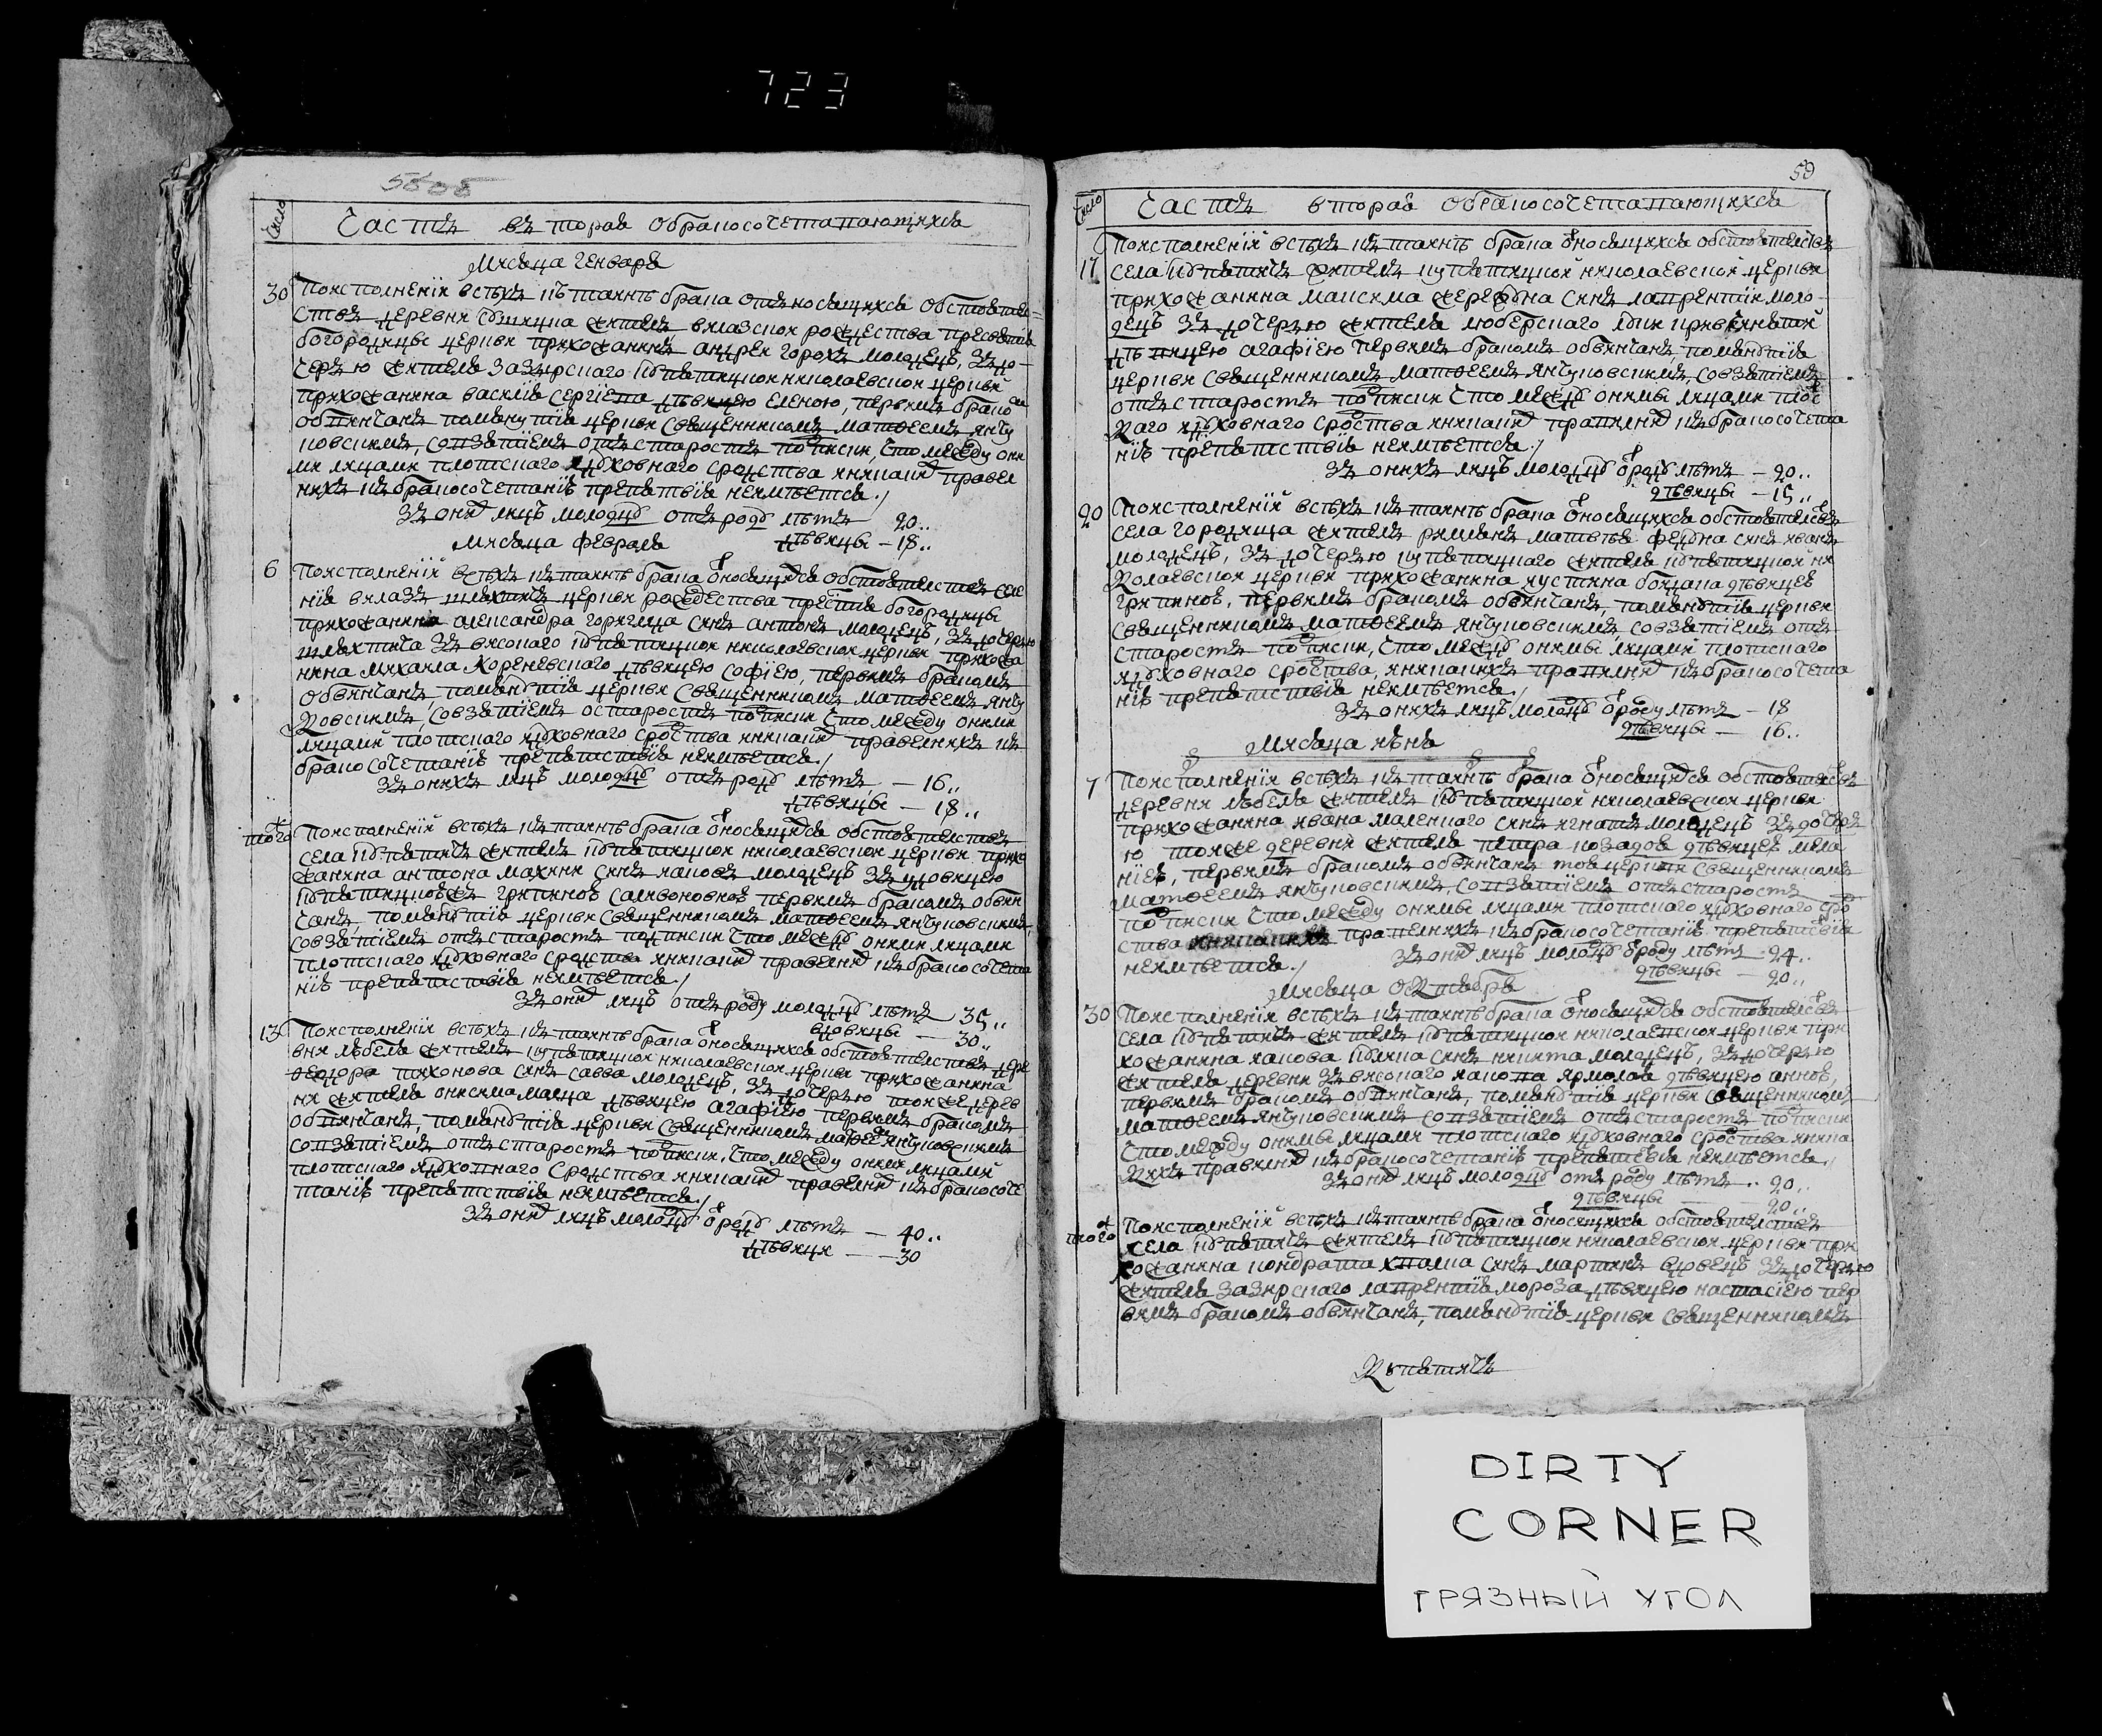 723
58 об
Число
Часть вторая о бракосочетавающихся
Месяца генваря
30 По исполнении всехъ къ таинѣ брака относящихся обстоятел=
ствъ деревни жител вязской рождества пресвятїя
богородицы церкви прихожанинъ андрей горохъ молодецъ, зъ до-
черью жителя зазерского купятицкой николаевской церкви
прихожанина василїя сергїева дѣвицею еленою, первимъ бракомъ
обвѣнчанъ помянутїя церкви священникомъ матфеемъ янчу
ковскимъ, со взятїемъ отъ старостъ подписки, что между они
ми лицами плотского и духовного сродства и никакихъ правил
нихъ къ бракосочетанїю препятствїя неимѣется./
зъ онихъ лицъ молодцу отъ роду лѣтъ 20..
Месяца февраля дѣвицы — 18..
6 По исполнении всехъ къ таинѣ брака относящихся обстоятелствъ селе
нїя вяза шляхтичъ церкви рождества пресвятїя богородицы
прихожанина александра горегляда синъ антонъ молодецъ, зъ дочерью
шляхтича завяского купятицкой николаевской церкви прихожа
нина михаила кореневского дѣвицею софїею, первимъ бракомъ
обвѣнчанъ, помянутїя церкви священникомъ матфеемъ янчу
ковскимъ, со взятїемъ от старостъ подписки что между оними
лицами плотского и духовного сродства и никакихъ правилнихъ къ
бракосочетанїю препятствїя неимѣется./
зъ онихъ лицъ молодцу отъ роду лѣтъ — 16..
дѣвицы — 18..
того ж По исполнении всехъ къ таинѣ брака относящихся обстоятелствъ
села купятичъ жител купятицкой николаевской церкви прихо
жанина антона махник синъ яковъ молодецъ зъ удовицею
купятицкою ж грипиною самооновною первимъ бракомъ обвѣн
чанъ, помянутїя церкви священникомъ матфеемъ янчуковскимъ,
со взятїемъ отъ старостъ подписки что между оними лицами
плотского и духовного сродства и никакихъ правилнихъ къ бракосочета
нїю препятствїя неимѣется./
зъ онихъ лицъ отъ роду молодцу лѣтъ 35..
вдовицы — 30..
13 По исполнении всехъ къ таинѣ брака относящихся обстоятелствъ дере
вни лѣбеля жител купятицкой николаевской церкви прихожанина
феодора тихонова синъ савва молодецъ, зъ дочерью тойже дерев
ни жителя онисима маеца дѣвицею агафїею первимъ бракомъ
обвѣнчанъ, помянутїя церкви священникомъ матфеемъ янчуковскимъ
со взятїемъ отъ старостъ подписки, что между оними лицами
плотского и духовного сродства и никакихъ правилнихъ къ бракосоче
танїю препятствїя неимѣется./
зъ онихъ лицъ молодцу от роду лѣтъ — 40..
дѣвици — 30
59
Число
Часть вторая о бракосочетавающихся
По исполнении всехъ къ таинѣ брака относящихся обстоятелствъ
17 села купятичъ жител купятицкой николаевской церкви
прихожанина максима синъ лаврентїи моло-
децъ зъ дочерью жителя люберского
дѣвицею агафїею первимъ бракомъ обвѣнчанъ, помянутїя
церкви священникомъ матфеемъ янчуковскимъ, со взятїемъ
отъ старостъ подписки что между онимы лицами плотс
кого и духовного сродства и никакихъ правилнихъ къ бракосочета
нїю препятствїя неимѣется./
зъ онихъ лицъ молодцу от роду лѣтъ — 20..
дѣвицы — 15..
20 По исполнении всехъ къ таинѣ брака относящихся обстоятелствъ
села городища жител римлянъ матвѣя синъ иванъ
молодецъ, зъ дочерью купятицкого жителя купятицкой ни
колаевской церкви прихожанина иустина бондара дѣвицею
грипиною, первимъ бракомъ обвѣнчанъ, помянутїя церкви
священникомъ матфеемъ янчуковскимъ, со взятїемъ отъ
старостъ подписки, что между онимы лицами плотского
и духовного сродства, и никакихъ правилнихъ къ бракосочета
нїю препятствїя неимѣется./
зъ онихъ лицъ молодцу от роду лѣтъ — 18
дѣвицы — 16..
Месяца июня
7 По исполнении всехъ къ таинѣ брака относящихся обстоятелствъ
деревни лѣбеля жител купятицкой николаевской церкви
прихожанина ивана маленкого синъ игнатъ молодецъ зъ дочер
ю тойже деревни жителя петра дѣвицею мела
нїею, первимъ бракомъ обвѣнчанъ тоя церкви священникомъ
матфеемъ янчуковскимъ, со взятїемъ отъ старостъ
подписки что между онимы лицами плотского и духовного срод
ства и никакихъ правилнихъ къ бракосочетанїю препятствїя
неимѣется./ зъ онихъ лицъ молодцу от роду лѣтъ 24..
дѣвицы — 20..
Месяца октября
30 По исполнении всехъ къ таинѣ брака относящихся обстоятелствъ
села купятичъ жител купятицкой николаевской церкви при
хожанина якова синъ никита молодецъ, зъ дочерью
жителя деревни завяского якова ярмолая дѣвицею анною,
первимъ бракомъ обвѣнчанъ, помянутїя церкви священникомъ
матфеемъ янчуковскимъ со взятїемъ отъ старостъ подписки
что между онимы лицами плотского и духовного сродства и ника
кихъ правилнихъ къ бракосочетанїю препятствїя неимѣется./
зъ онихъ лицъ молодцу отъ роду лѣтъ .. 20..
дѣвицы — 20..
того ж По исполнении всехъ къ таинѣ брака относящихся обстоятелствъ
села купятичъ жител купятицкой николаевской церкви при
хожанина кондрата синъ мартинъ вдовецъ зъ дочерью
жителя зазирского лаврентїя мороза дѣвицею настасїею пер
вимъ бракомъ обвѣнчанъ, помянутїя церкви священникомъ
Купятичъ
DIRTY
CORNER
ГРЯЗНЫЙ УГОЛ